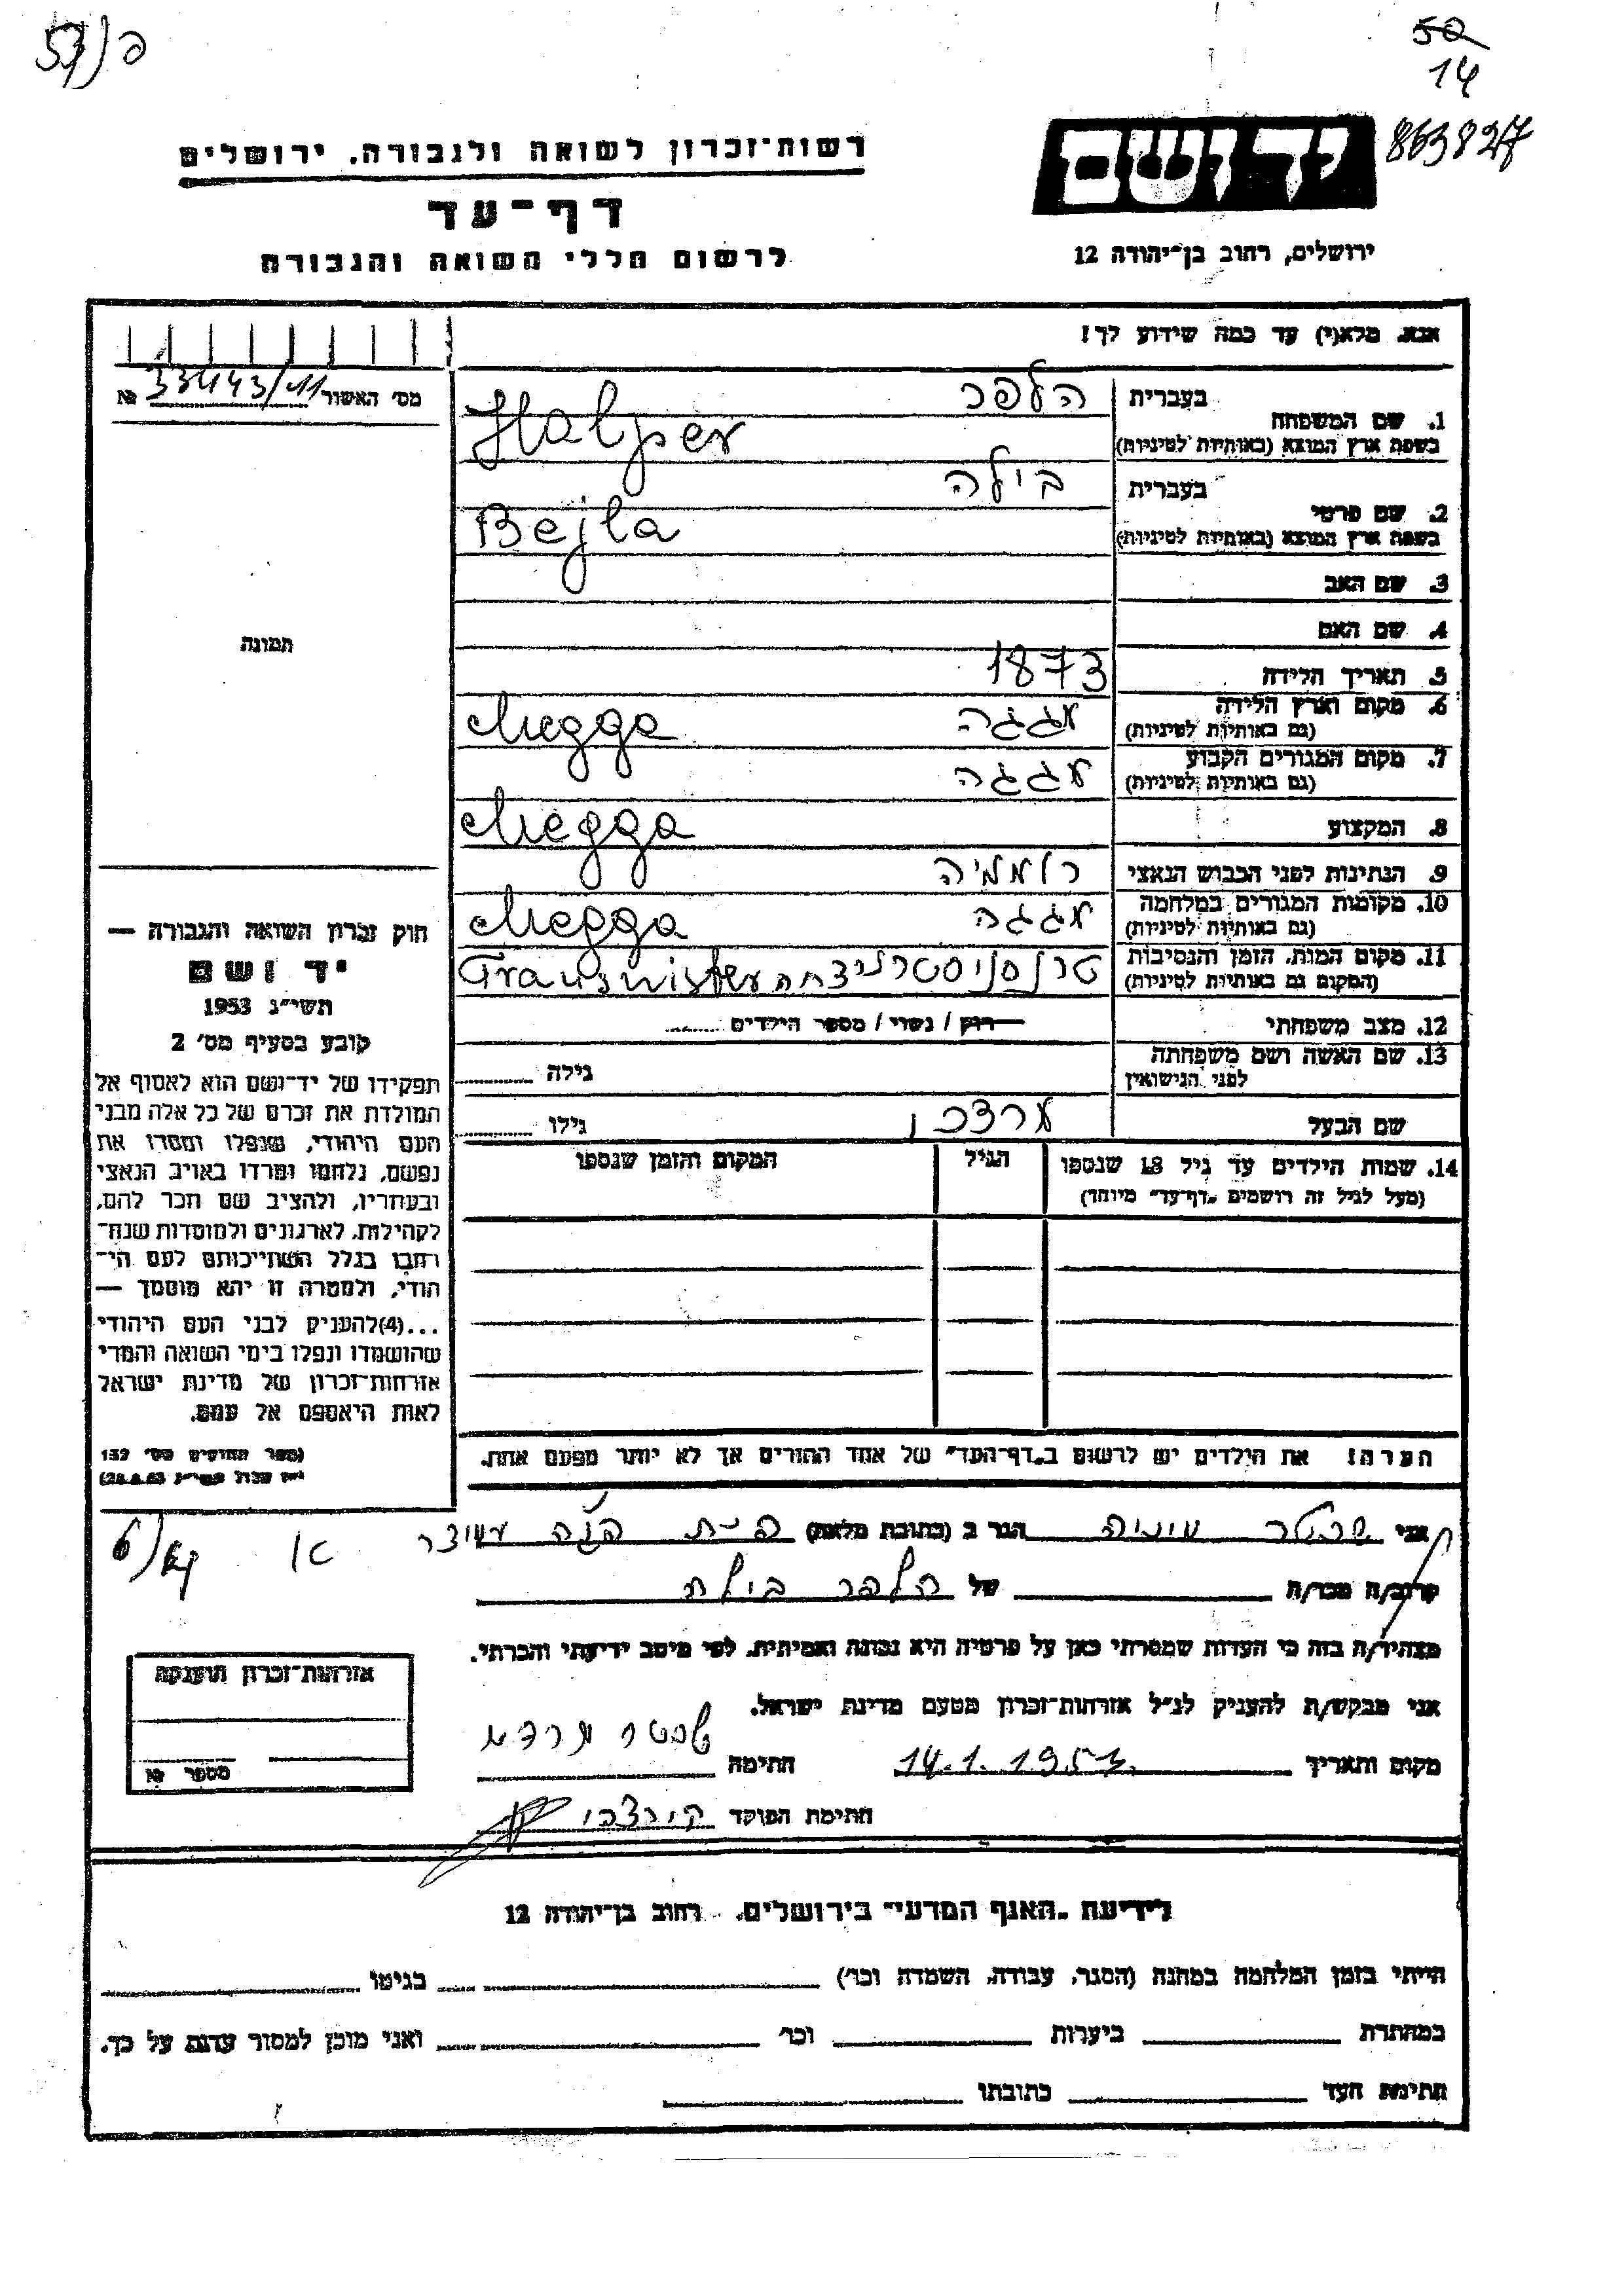 50
14
53/פ
863827
יד ושם
רשות־זכרון לשואה ולגבורה, ירושלים
דף־עד
לרשום חללי השואה והגבורה
ירושלים, רחוב בן־יהודה 12
אנא, מלא(י) עד כמה שידוע לך!
מס׳ האשור 33443/11 №
בעברית הלפר
1. שם המשפחה
בשפת ארץ המוצא (באותיות לטיניות) Halper
בעברית בילה
2. שם פרטי
בשפת ארץ המוצא (באותיות לטיניות) Bejla
3. שם האב
4. שם האם
תמונה
5. תאריך הלידה 1873
6. מקום וארץ הלידה
(גם באותיות לטיניות)
7. מקום המגורים הקבוע
(גם באותיות לטיניות)
8. המקצוע
9. הנתינות לפני הכבוש הנאצי רומניה
10. מקומות המגורים במלחמה
(גם באותיות לטיניות)
11. מקום המות, הזמן והנסיבות
(המקום גם באותיות לטיניות)
12. מצב משפחתי רוק / נשוי / מספר הילדים
13. שם האשה ושם משפחתה
לפני הנישואין גילה
שם הבעל מרדכי גילו
14. שמות הילדים עד גיל 18 שנספו הגיל המקום והזמן שנספו
(מעל לגיל זה רושמים „דף־עד” מיוחד)
חוק זכרון השואה והגבורה —
יד ושם
תשי״ג 1953
קובע בסעיף מס׳ 2
תפקידו של יד־ושם הוא לאסוף אל
המולדת את זכרם של כל אלה מבני
העם היהודי, שנפלו ומסרו את
נפשם, נלחמו ומרדו באויב הנאצי
ובעוזריו, ולהציב שם וזכר להם,
לקהילות, לארגונים ולמוסדות שנח־
רבו בגלל השתייכותם לעם הי־
הודי, ולמטרה זו יהא מוסמך —
...(4)להעניק לבני העם היהודי
שהושמדו ונפלו בימי השואה והמרי
אזרחות־זכרון של מדינת ישראל
לאות היאספם אל עמם.
(ספר החוקים מס׳ 132
הערה! את הילדים יש לרשום ב„דף־העד” של אחד ההורים אך לא יותר מפעם אחת.
אני הגר ב (כתובת מלאה)
קרוב/ה מכר/ה של הלפר בילה
מצהיר/ה בזה כי העדות שמסרתי כאן על פרטיה היא נכונה ואמיתית, לפי מיטב ידיעתי והכרתי.
אני מבקש/ת להעניק לנ״ל אזרחות־זכרון מטעם מדינת ישראל.
מקום ותאריך חתימה
חתימת הפוקד
אזרחות־זכרון הוענקה
מספר №
לידיעת „האגף המדעי” בירושלים, רחוב בן־יהודה 12
הייתי בזמן המלחמה במחנה (הסגר, עבודה, השמדה וכו׳) בגיטו
במחתרת ביערות וכו׳ ואני מוכן למסור עדות על כך.
חתימת העד כתובתו